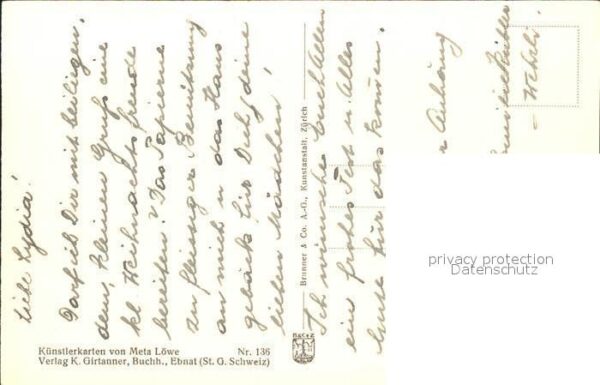 Liebe Lydia!
Darf ich Dir mit beiliegen,
dem, kleinen Gruss eine
kl. Weihnachtsfreude
bereiten. Das Papierne
zu fleissiger Benützung
an mich u das Haus
gebäck für Dich, deine
lieben Mädchen!
Ich wünsche Euch Allen
ein frohes Fest u. Alles
Gute für das kommen.
Anhäng
Brunner & Co. A.-G., Kunstanstalt, Zürich
Künstlerkarten von Meta Löwe Nr. 136
Verlag K. Girtanner, Buchh., Ebnat (St. G. Schweiz)
privacy protection
Datenschutz